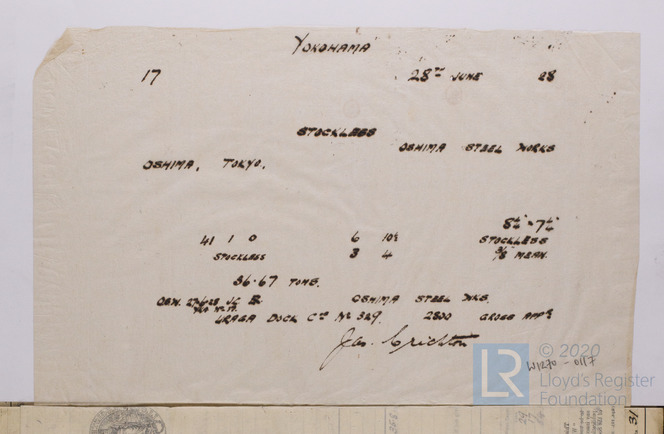 YOKOHAMA
17 28TH JUNE 28
STOCKLESS
OSHIMA STEEL WORKS
OSHIMA, TOKYO.
41 1 0 6 10½ STOCKLESS
STOCKLESS 3 4 3/8" MEAN.
36.67 TONS.
OSHIMA STEEL WKS.
URAGA DOCK Coy No 329. 2800 GROSS APPX
Jas. Crichton
W1270-0117
LR © 2020
Lloyd's Register
Foundation